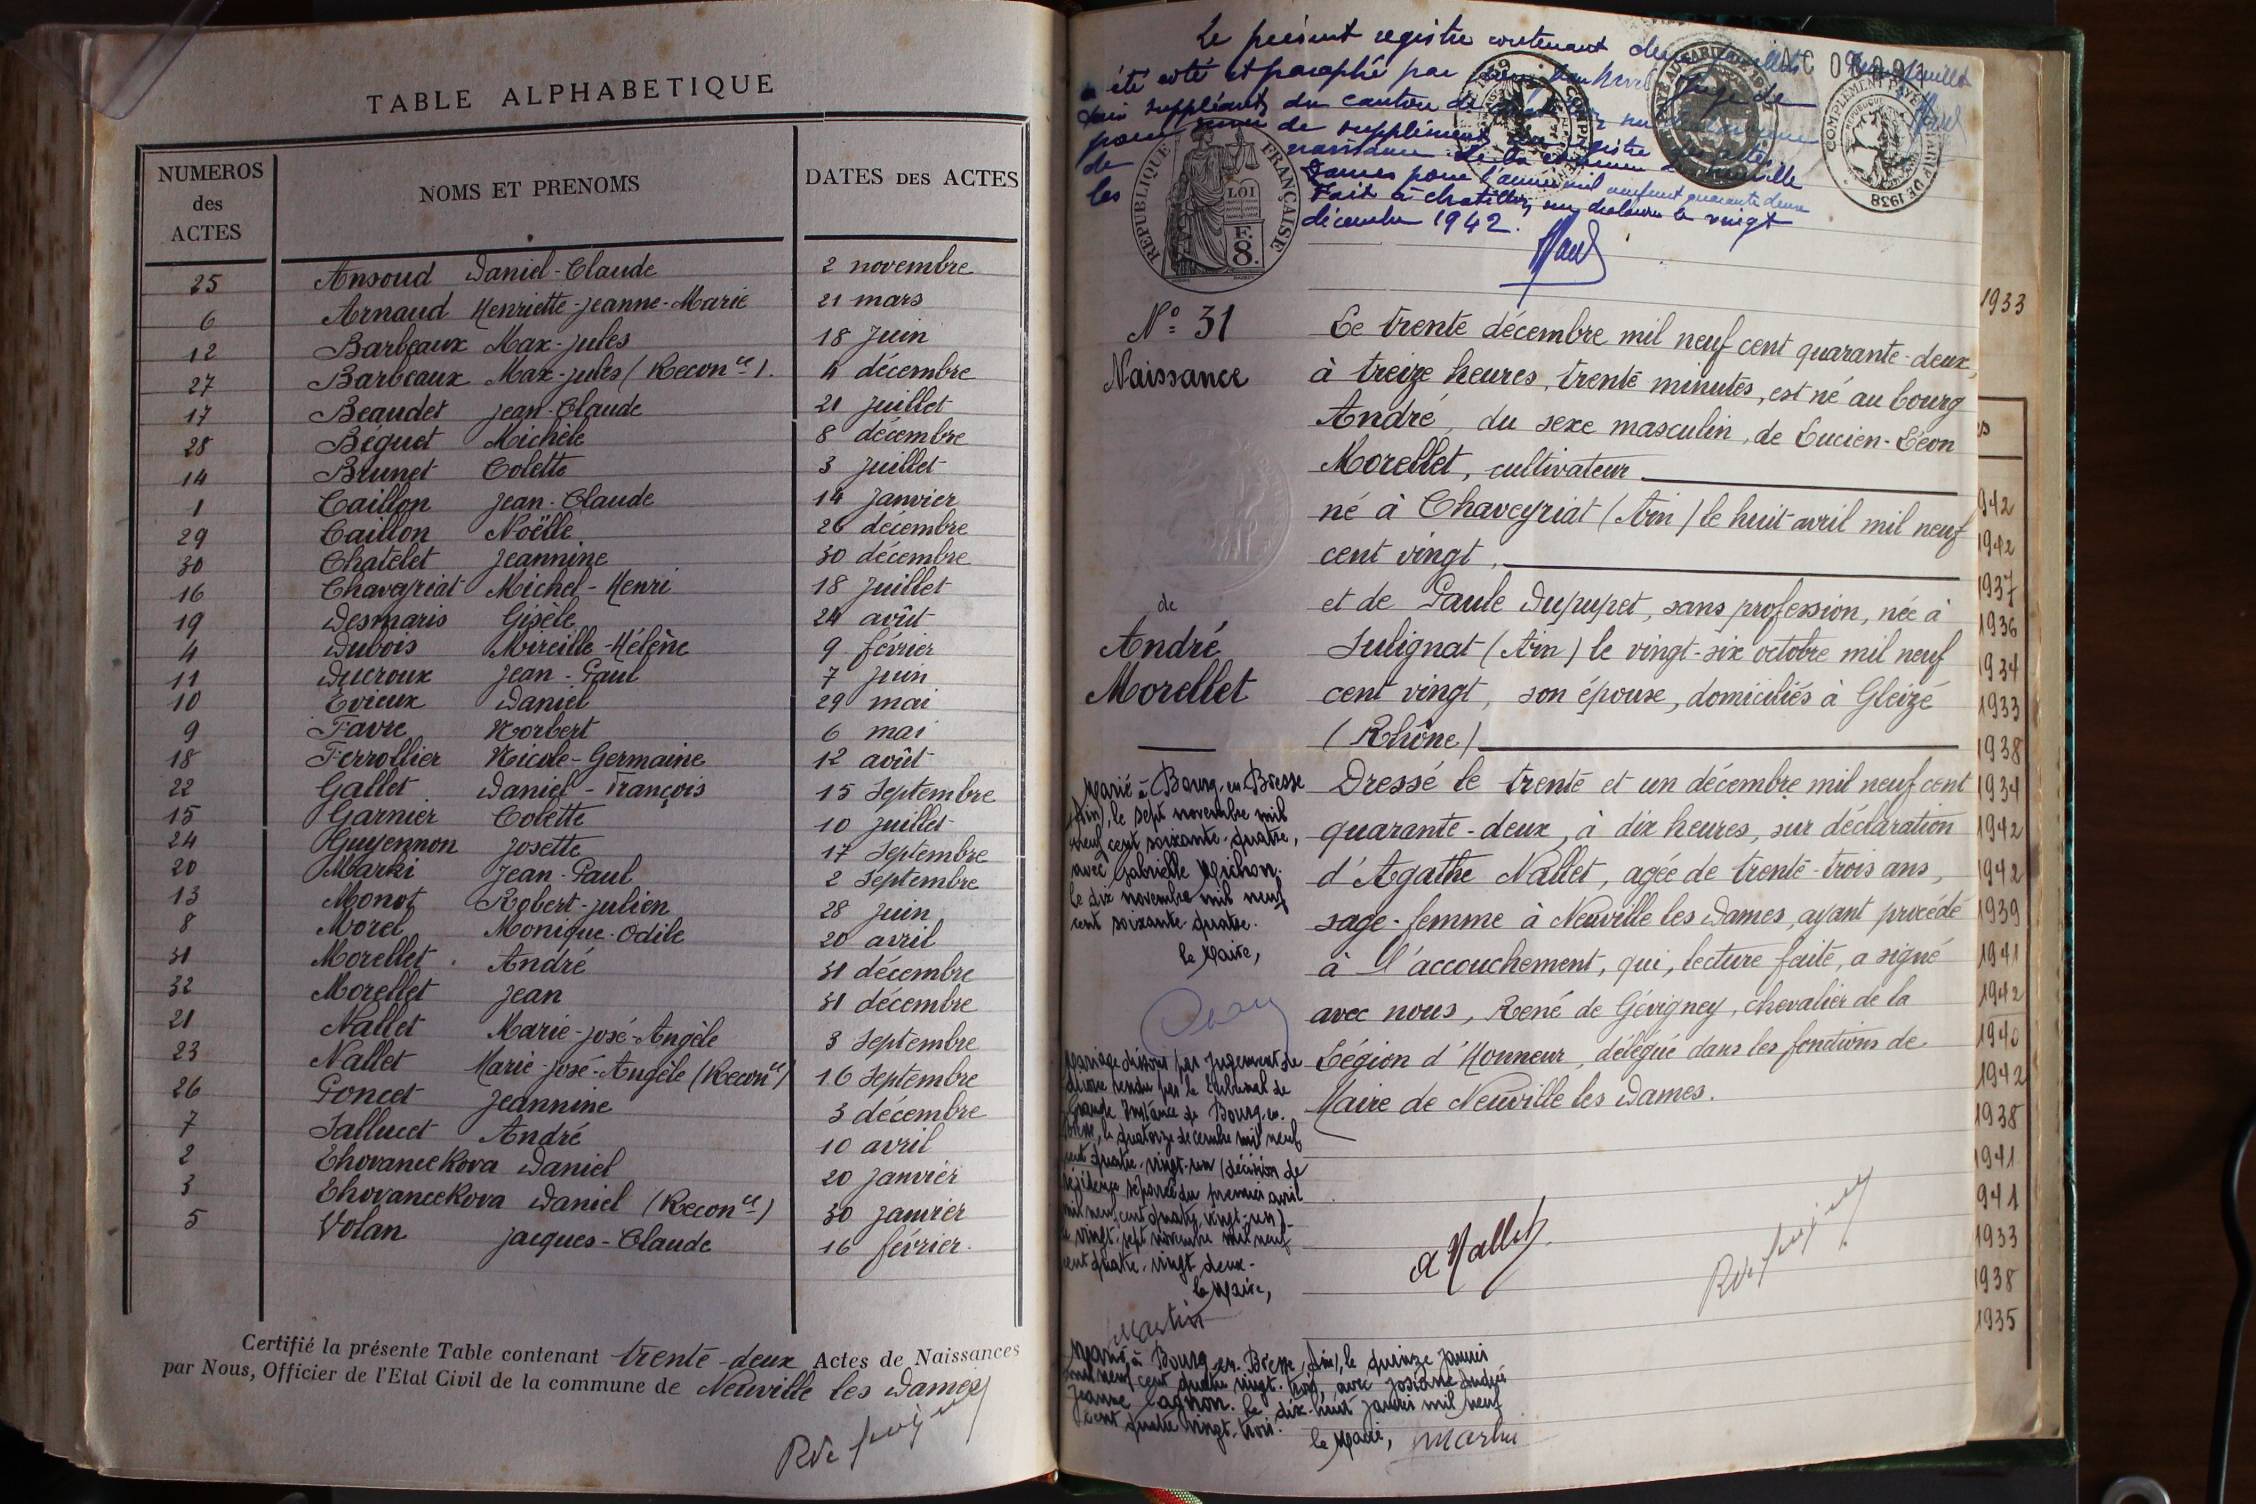 TABLE ALPHABETIQUE
NUMEROS des ACTES NOMS ET PRENOMS DATES DES ACTES
25 Ansoud Daniel-Claude 2 novembre
6 Arnaud Henriette-Jeanne-Marie 21 mars
12 Barbeaux Max-Jules 18 Juin
27 Barbeaux Max-Jules (Reconce). 4 décembre
17 Beaudet Jean-Claude 21 Juillet
28 Béguet Michèle 8 décembre
14 Brunet Colette 3 Juillet
1 Caillon Jean-Claude 14 Janvier
29 Caillon Noëlle 26 décembre
30 Chatelet Jeannine 30 décembre
16 Chaveyriat Michel-Henri 18 Juillet
19 Desmaris Gisèle 24 août
4 Dubois Mireille-Hélène 9 février
11 Ducroux Jean-Paul 7 Juin
10 Evieux Daniel 29 mai
9 Favre Norbert 6 mai
18 Ferrollier Nicole-Germaine 12 août
22 Gallet Daniel-François 15 Septembre
15 Garnier Colette 10 Juillet
24 Guyennon Josette 17 Septembre
20 Marki Jean-Paul 2 Septembre
13 Monot Robert-Julien 28 Juin
8 Morel Monique-Odile 20 avril
31 Morellet André 31 décembre
32 Morellet Jean 31 décembre
21 Nallet Marie-José-Angèle 3 Septembre
23 Nallet Marie-José-Angèle (Reconce) 16 Septembre
26 Poncet Jeannine 3 décembre
7 Sallucet André 10 avril
2 Chovancekova Daniel 20 Janvier
3 Chovancekova Daniel (Reconce) 30 Janvier
5 Volan Jacques-Claude 16 février.
Certifié la présente Table contenant trente-deux Actes de Naissances
par Nous, Officier de l'Etat Civil de la commune de Neuville les Dames
Le présent registre contenant
a été coté et paraphé par Juge de
Paix suppléant du canton de
pour servir de supplément registre
de naissance de la commune de Neuville
les Dames pour l'année mil neuf cent quarante deux
Fait à Chatillon sur Chalaronne le vingt
décembre 1942.
REPUBLIQUE FRANÇAISE
LOI
F.
8.
COMPLEMENT PAYE
TARIF DE 1938
N° 31
Naissance
de
André
Morellet
Le trente décembre mil neuf cent quarante-deux,
à treize heures, trente minutes, est né au bourg
André, du sexe masculin, de Lucien-Léon
Morellet, cultivateur
né à Chaveyriat (Ain) le huit avril mil neuf
cent vingt,
et de Paule Dupupet, sans profession, née à
Sulignat (Ain) le vingt-six octobre mil neuf
cent vingt, son épouse, domiciliés à Gleizé
(Rhône)
Dressé le trente et un décembre mil neuf cent
quarante-deux, à dix heures, sur déclaration
d'Agathe Nallet, agée de trente-trois ans,
sage-femme à Neuville les Dames, ayant procédé
à l'accouchement, qui, lecture faite, a signé
avec nous, René de Gévigney, chevalier de la
Légion d'Honneur, délégué dans les fonctions de
Maire de Neuville les Dames.
a Nallet
Marié à Bourg-en-Bresse
(Ain), le sept novembre mil
neuf cent soixante-quatre,
avec Gabrielle Michon.
le dix novembre mil neuf
cent soixante-quatre.
le Maire,
Mariage dissous par jugement de
divorce rendu par le Tribunal de
Grande Instance de Bourg-en-
Bresse, le quatorze décembre mil neuf
cent quatre-vingt-un (décision de
résidence séparée du premier avril
mil neuf cent quatre-vingt-un)-
le vingt-sept novembre mil neuf
cent quatre-vingt deux-
le Maire,
Martin
Marié à Bourg-en-Bresse (Ain), le quinze janvier
mil neuf cent quatre vingt-trois, avec Josiane Andrée
Jeanne Cagnon. le dix-huit janvier mil neuf
cent quatre vingt-trois.
le Maire, Martin
1933
942
1942
1937
1936
1934
1933
1938
1934
1942
1942
1939
1941
1942
1940
1942
1938
1941
941
1933
1938
1935